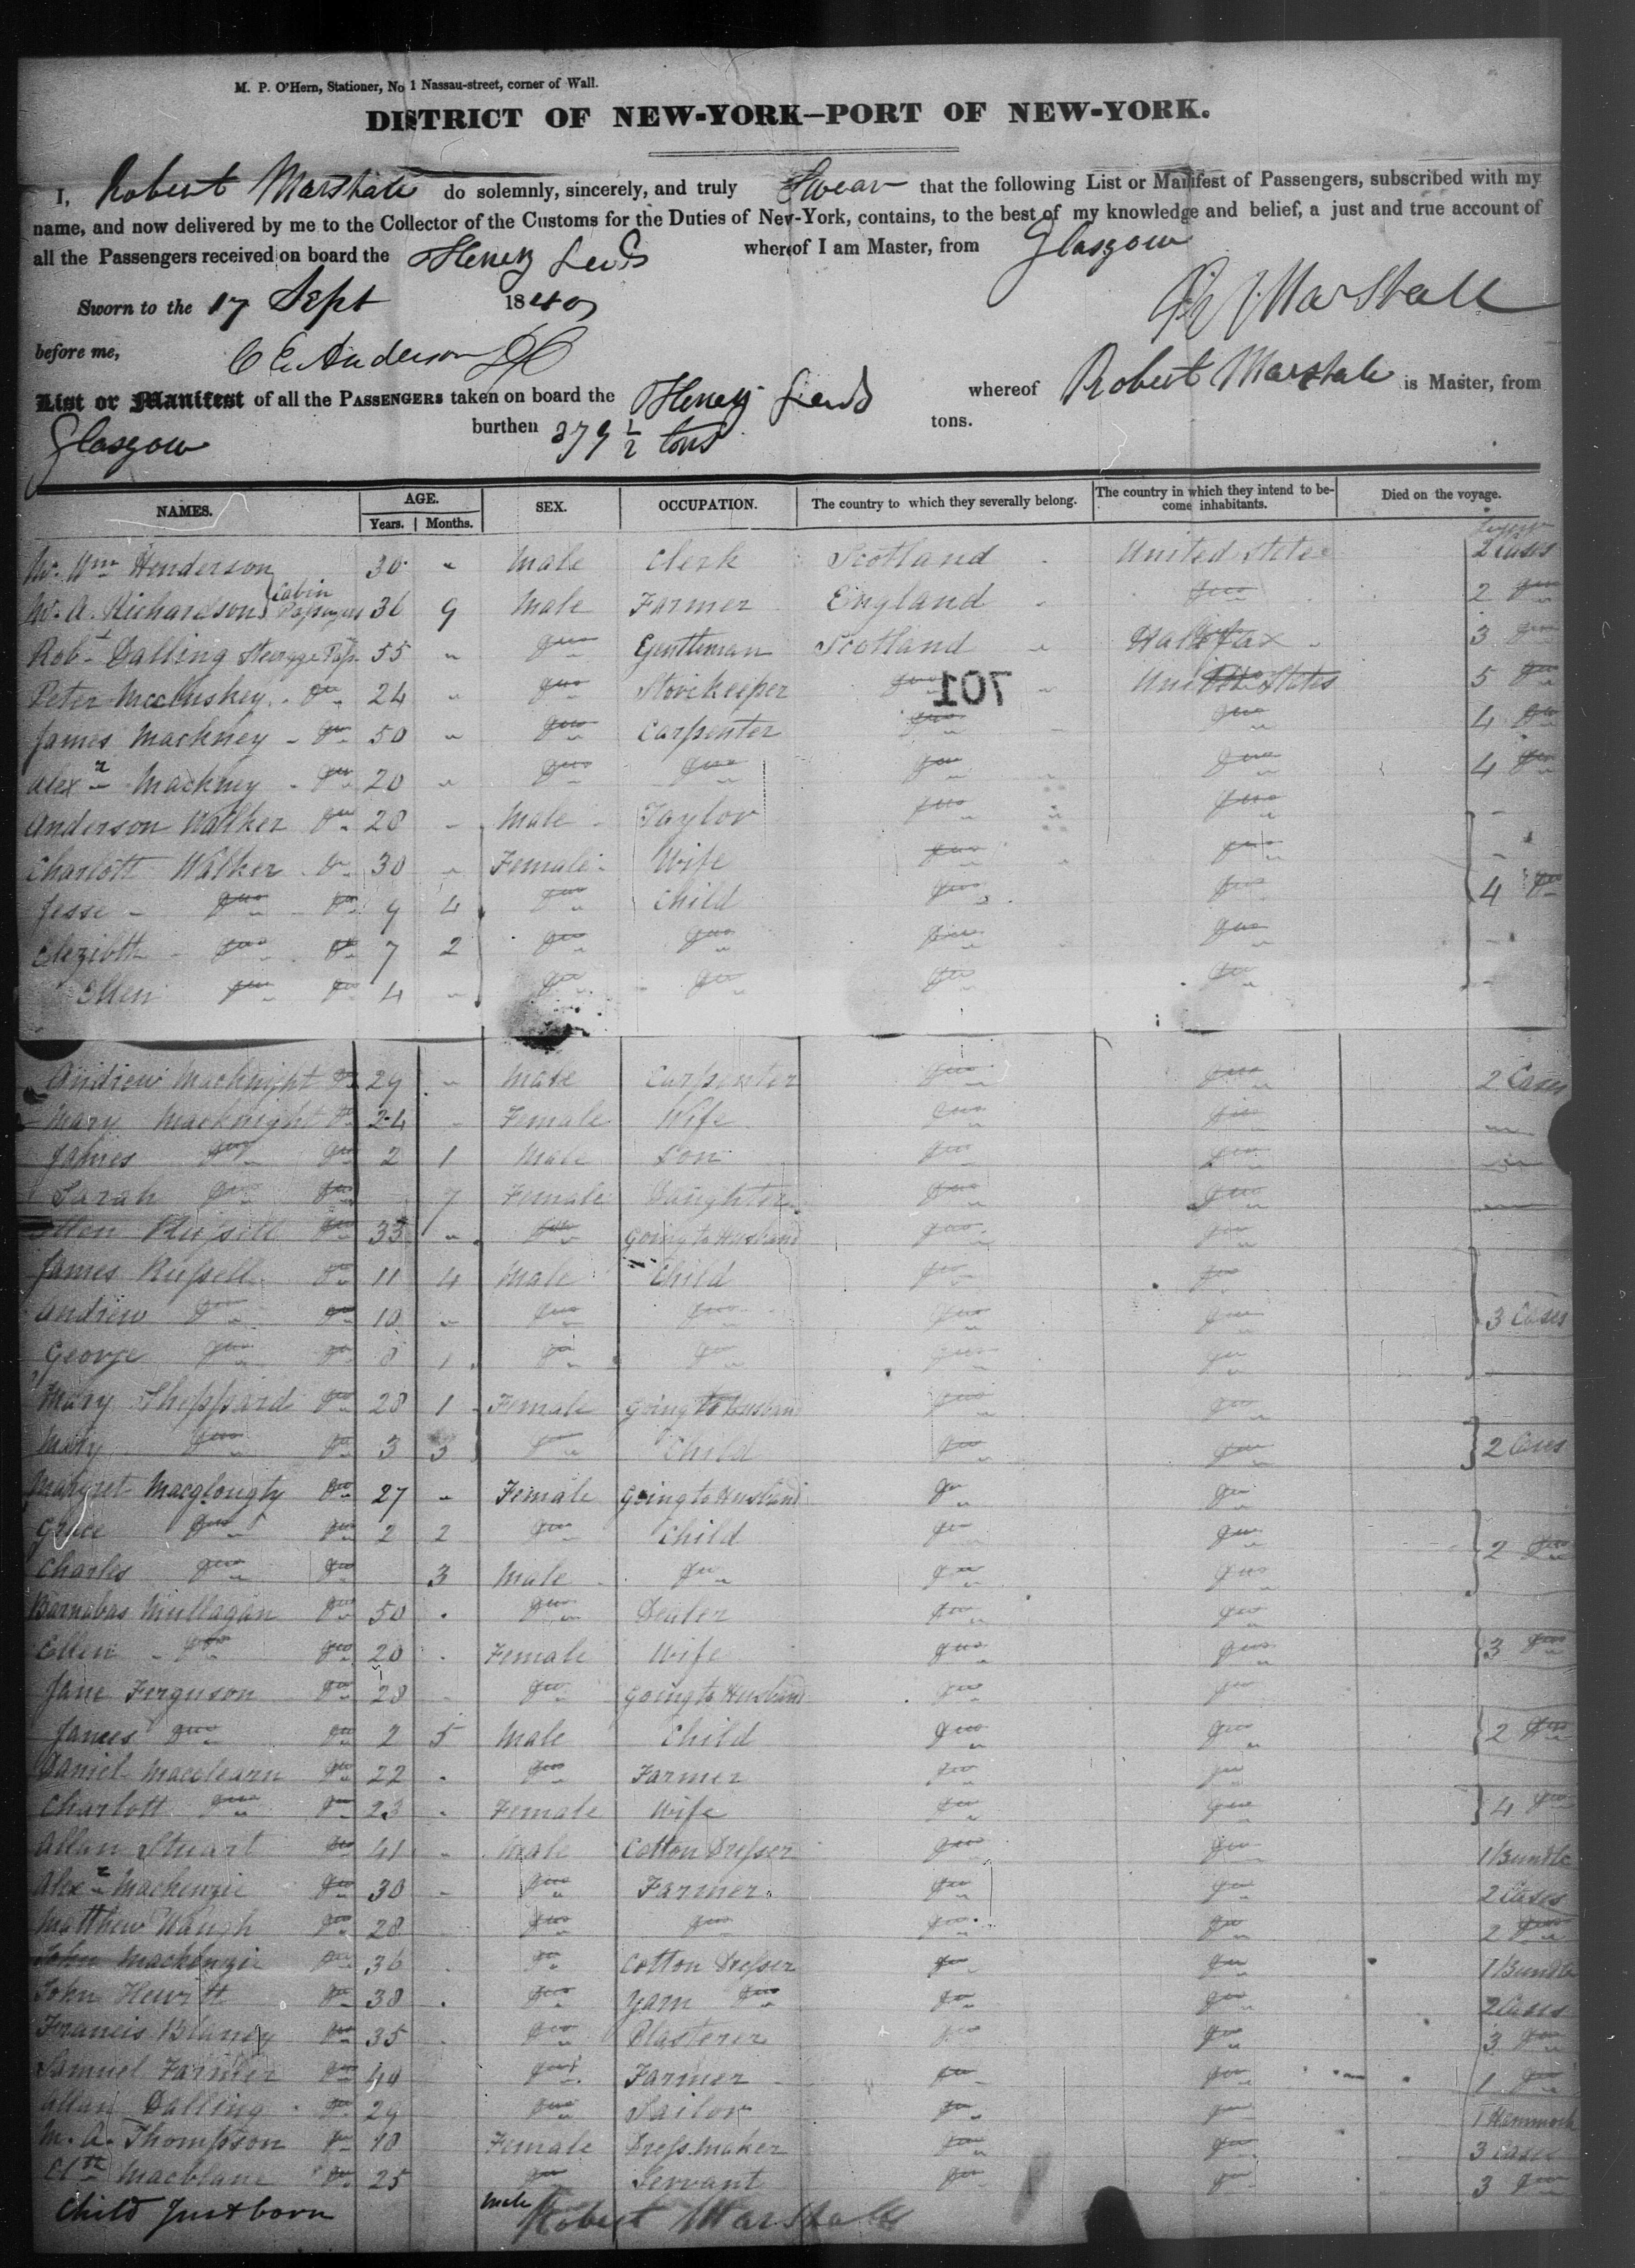 M. P. O'Hern, Stationer, No 1 Nassau-street, corner of Wall.
DISTRICT OF NEW-YORK—PORT OF NEW-YORK.
I, Robert Marshall do solemnly, sincerely, and truly Swear that the following List or Manifest of Passengers, subscribed with my
name, and now delivered by me to the Collector of the Customs for the Duties of New-York, contains, to the best of my knowledge and belief, a just and true account of
all the Passengers received on board the Henry whereof I am Master, from Glasgow
Sworn to the 17 Sept 1840 Marshall
before me, Anderson
List or Manifest of all the PASSENGERS taken on board the Henry whereof Robert Marshall is Master, from
Glasgow burthen 379 1/2 tons tons.
NAMES. AGE. Years. Months. SEX. OCCUPATION. The country to which they severally belong. The country in which they intend to become inhabitants. Died on the voyage.
Mr. Wm Henderson 30 " Male Clerk Scotland United States 2 Cases
Mr. A. Richardson Cabin Passengers 36 9 Male Farmer England Do 2 Do
Robt Dalling Steerage Pass. 55 " Do Gentleman Scotland Halifax 3 Do
Peter Do 24 " Do Storekeeper Do United States 5 Do
701
James Mackney Do 50 " Do Carpenter Do Do 4 Do
Alexr Mackney Do 20 " Do Do Do Do 4 Do
Anderson Walker Do 28 Male Taylor Do Do
Charlott Walker Do 30 " Female Wife Do Do
Jesse Do Do 9 4 Do Child Do Do 4 Do
Elezibth Do Do 7 2 Do Do Do Do
Ellen Do Do 4 " Do Do Do Do
Andrew Macknight Do 29 " Male Carpenter Do Do 2 Cases
Mary Macknight Do 24 Female Wife Do Do
James Do Do 2 1 Male Son Do Do
Sarah Do Do 7 Female Daughter Do Do
Russell Do 35 " Do Going to Husband Do Do
James Russell Do 11 4 Male Child Do Do
Andrew Do Do 10 " Do Do Do Do 3 Cases
George Do Do 8 1 Do Do Do Do
Mary Sheppard Do 28 1 Female Going to Husband Do Do
Mary Do Do 3 3 Do Child Do Do 2 Cases
Margret Macglougty Do 27 " Female Going to Husband Do Do
Grace Do Do 2 2 Do Child Do Do 2 Do
Charles Do Do 3 Male Do Do Do
Barnabas Mullagan Do 50 Do Dealer Do Do
Ellen Do Do 20 Female Wife Do Do 3 Do
Jane Ferguson Do 28 Do Going to Husband Do Do
James Do Do 2 5 Male Child Do Do 2 Do
Daniel Macclearn Do 22 Do Farmer Do Do
Charlott Do Do 23 Female Wife Do Do 4 Do
Allan Stuart Do 41 " Male Cotton Dresser Do Do 1 Bundle
Alexr Mackenzie Do 30 Do Farmer Do Do 2 Cases
Matthew Waugh Do 28 Do Do Do Do 2 Do
John Mackenzie Do 36 Do Cotton Dresser Do Do 1 Bundle
John Hewitt Do 38 Do Yarn Do Do Do 2 Cases
Francis Blaney Do 35 Do Plasterer Do Do 3 Do
Samuel Farmer Do 40 Do Farmer Do Do 1 Do
Allan Dalling Do 29 Do Sailor Do Do 1 Hammock
M. A. Thompson Do 18 Female Dress Maker Do Do 3 Cases
Macblane Do 25 Do Servant Do Do 3 Do
Child Just born Male Robert Marshall